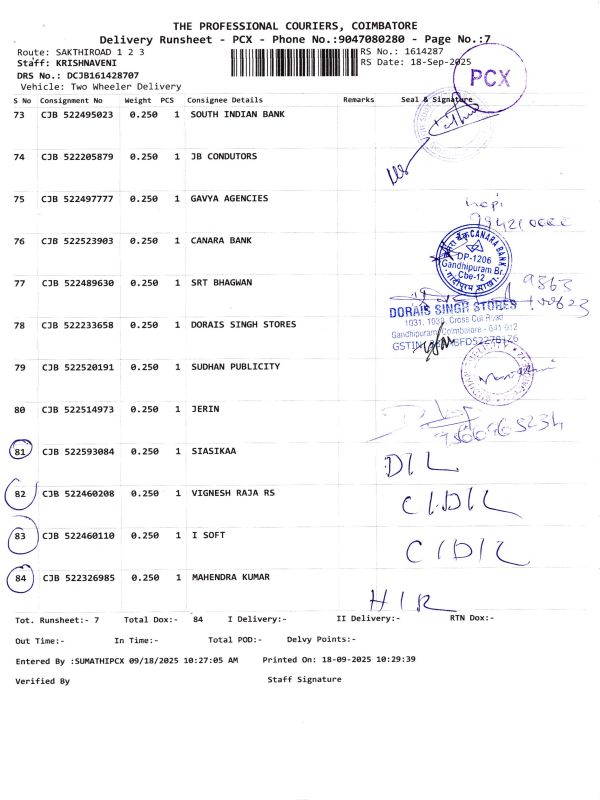 THE PROFESSIONAL COURIERS, COIMBATORE
Delivery Runsheet - PCX - Phone No.:9047080280 - Page No.:7
Route: SAKTHIROAD 1 2 3
RS No.: 1614287
Staff: KRISHNAVENI
RS Date: 18-Sep-2025
DRS No.: DCJB161428707
Vehicle: Two Wheeler Delivery
PCX
S No Consignment No Weight PCS Consignee Details Remarks Seal & Signature
73 CJB 522495023 0.250 1 SOUTH INDIAN BANK
74 CJB 522205879 0.250 1 JB CONDUTORS
75 CJB 522497777 0.250 1 GAVYA AGENCIES
76 CJB 522523903 0.250 1 CANARA BANK
CANARA BANK
DP-1206
Gandhipuram Br.
Cbe-12
77 CJB 522489630 0.250 1 SRT BHAGWAN
9363
78 CJB 522233658 0.250 1 DORAIS SINGH STORES
DORAIS SINGH STORES
Cross Cut Road
Gandhipuram, Coimbatore - 641 012
79 CJB 522520191 0.250 1 SUDHAN PUBLICITY
80 CJB 522514973 0.250 1 JERIN
81 CJB 522593084 0.250 1 SIASIKAA
D/L
82 CJB 522460208 0.250 1 VIGNESH RAJA RS
C/D/L
83 CJB 522460110 0.250 1 I SOFT
C/D/L
84 CJB 522326985 0.250 1 MAHENDRA KUMAR
H/R
Tot. Runsheet:- 7 Total Dox:- 84 I Delivery:- II Delivery:- RTN Dox:-
Out Time:- In Time:- Total POD:- Delvy Points:-
Entered By :SUMATHIPCX 09/18/2025 10:27:05 AM Printed On: 18-09-2025 10:29:39
Verified By Staff Signature